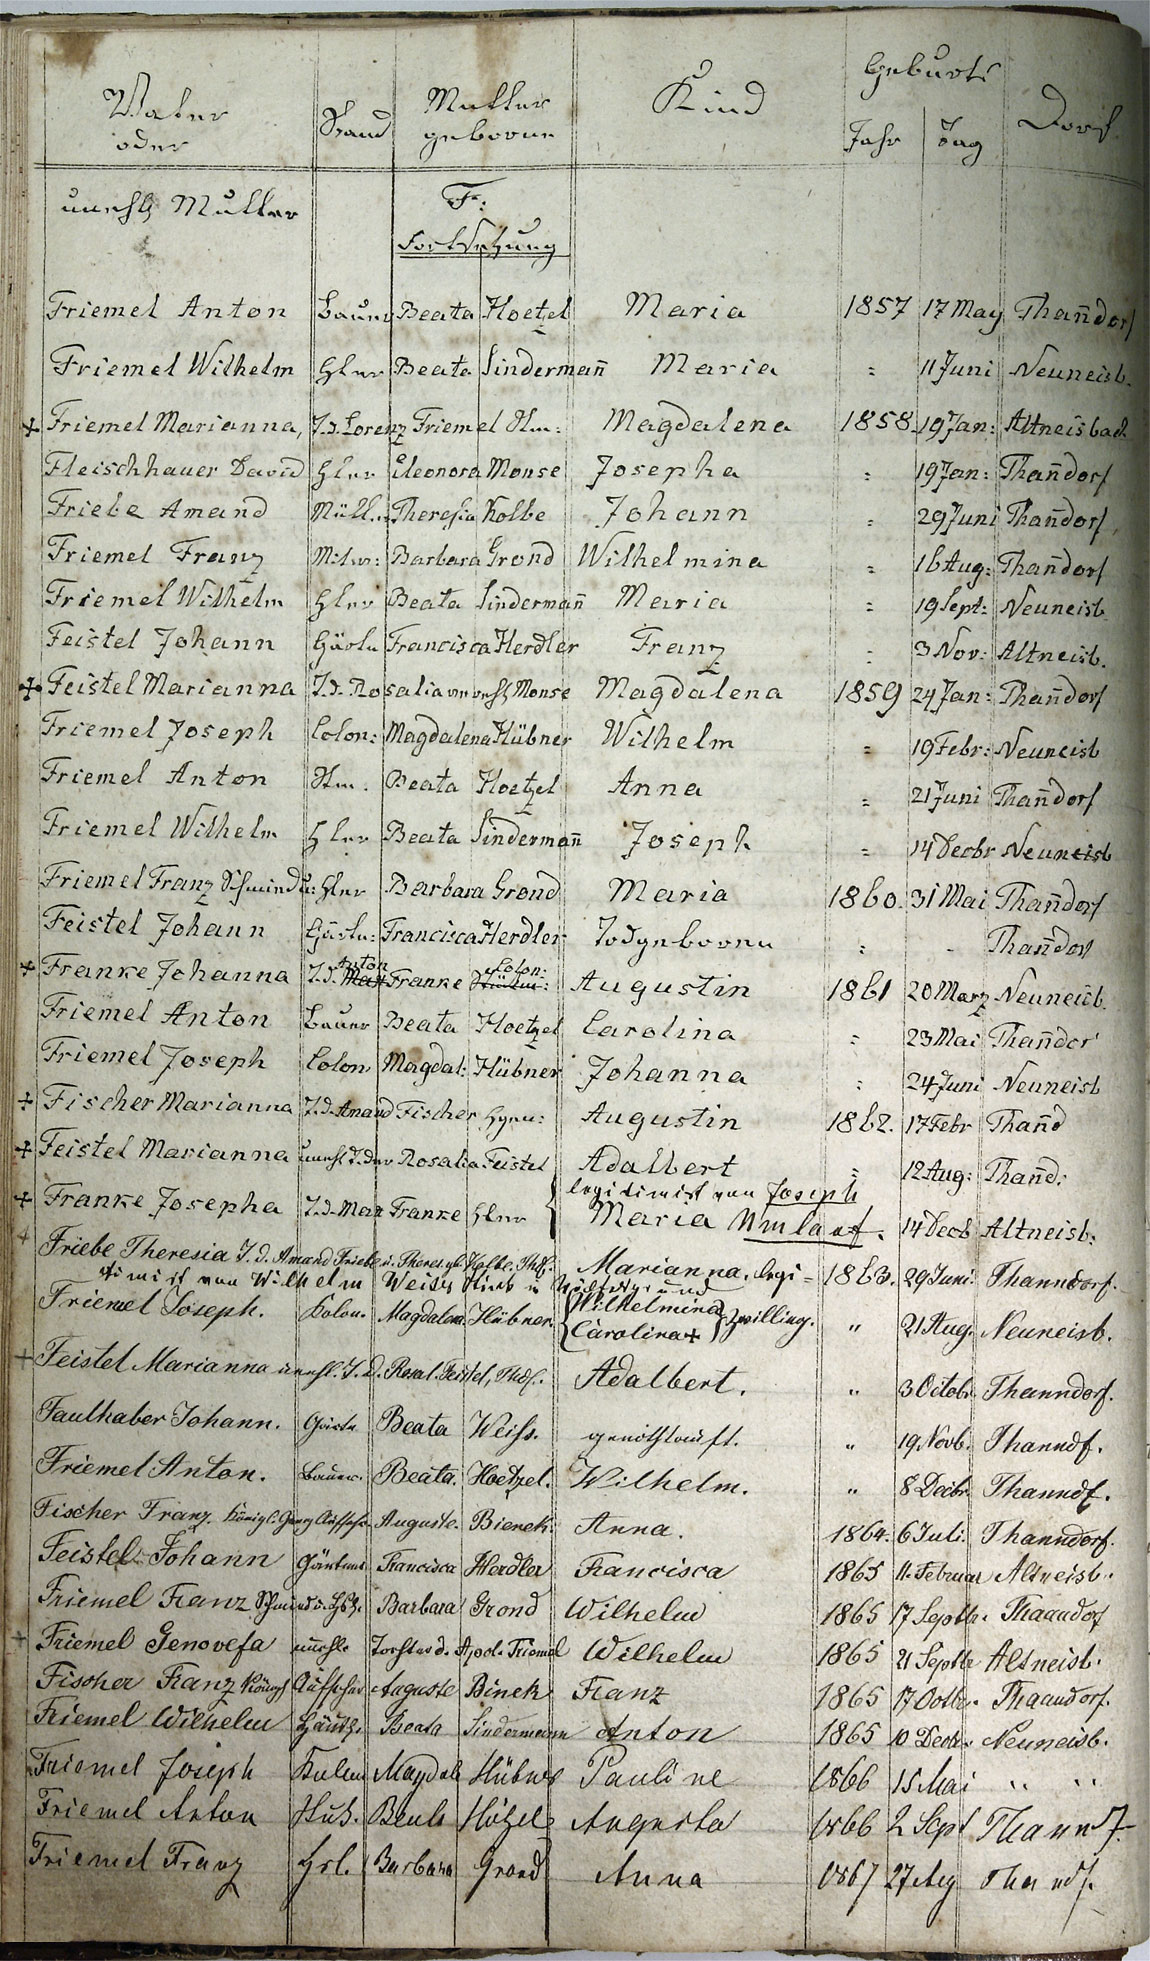 Vater Stand Mutter Kind Geburts Dorf
oder geborne Jahr Tag
unehl Mutter F:
Fortsetzung
Friemel Anton Bauer Beata Hoetzel Maria 1857 17 May Thanndorf
Friemel Wilhelm Hsler Beata Sindermann Maria = 11 Juni Neuneisb.
+ Friemel Marianna, T.d. Lorenz Friemel Stm: Magdalena 1858. 19 Jan: Altneisbach
Fleischhauer David Hsler Eleonora Monse Josepha = 19 Jan: Thanndorf
Friebe Amand Müll. Theresia Kolbe Johann = 29 Juni Thanndorf
Friemel Franz Barbara Grond Wilhelmina = 16 Aug: Thanndorf
Friemel Wilhelm Hsler Beata Sindermann Maria = 19 Sept: Neuneisb
Feistel Johann Gärtn Francisca Herdler Franz = 3 Nov: Altneisb.
+ Feistel Marianna T.d. Rosalia verehl Monse Magdalena 1859 24 Jan: Thanndorf
Friemel Joseph Colon: Magdalena Hübner Wilhelm = 19 Febr: Neuneisb
Friemel Anton Stm. Beata Hoetzel Anna = 21 Juni Thanndorf
Friemel Wilhelm Hsler Beata Sindermann Joseph = 14 Decbr Neuneisb
Friemel Franz Schmied u: Hsler Barbara Grond Maria 1860. 31 Mai Thanndorf
Feistel Johann Gärtn: Francisca Herdler Todgeboren = - Thanndorf
+ Franke Johanna T.d. Anton Franke Colon: Augustin 1861 20 Marz Neuneisb.
Friemel Anton Bauer Beata Hoetzel Carolina = 23 Mai Thanndor
Friemel Joseph Colon Magdal: Hübner Johanna = 24 Juni Neuneisb
+ Fischer Marianna T.d. Amand Fischer Augustin 1862. 17 Febr Thannd
+ Feistel Marianna unehl T. der Rosalia Feistel Adalbert = 12 Aug: Thannd.
legitimirt von Joseph
+ Franke Josepha T.d. Max Franke Hsler Maria Umlauf. 14 Decb Altneisb.
+ Friebe Theresia T.d. Amand Friebe u. Theres. gb. Kolbe. Thdf. Marianna. legi= 1863. 29 Juni. Thanndorf.
timirt von Wilhelm Weiss
Friemel Joseph. Kolon. Magdalen. Hübner. {Wilhelmina Carolina+} Zwilling. " 21 Aug. Neuneisb.
+ Feistel Marianna unehl. T.d. Rosal. Feistel, Thdf. Adalbert. " 3 Octobr. Thanndorf.
Faulhaber Johann. Gärtn Beata Weiss. genothtauft. " 19 Novb. Thanndf.
Friemel Anton. Bauer. Beata. Hoetzel. Wilhelm. " 8 Decbr. Thanndf.
Fischer Franz. Königl. Aufseh. Auguste. Bienek. Anna. 1864. 6 Juli. Thanndorf.
Feistel Johann Gärtner Francisca Herdler Francisca 1865 11. Februar Altneisb.
Friemel Franz Schmied u. Barbara Grond Wilhelm 1865 17 Septbr. Thanndorf
+ Friemel Genovefa unehle Tochter d. Apol. Friemel Wilhelm 1865 21 Septbr Altneisb.
Fischer Franz Königl Aufseher Auguste Binek Franz 1865 17 Octbr. Thanndorf.
Friemel Wilhelm Häusl. Beata Sindermann Anton 1865 10 Decbr. Neuneisb.
Friemel Joseph Magdale Hübner Pauline 1866 15 Mai " "
Friemel Anton Beate Hötzel Augusta 1866 2 Sept Thanndf.
Friemel Franz Hsl. Barbara Grond Anna 1867 27 Aug Thandf.